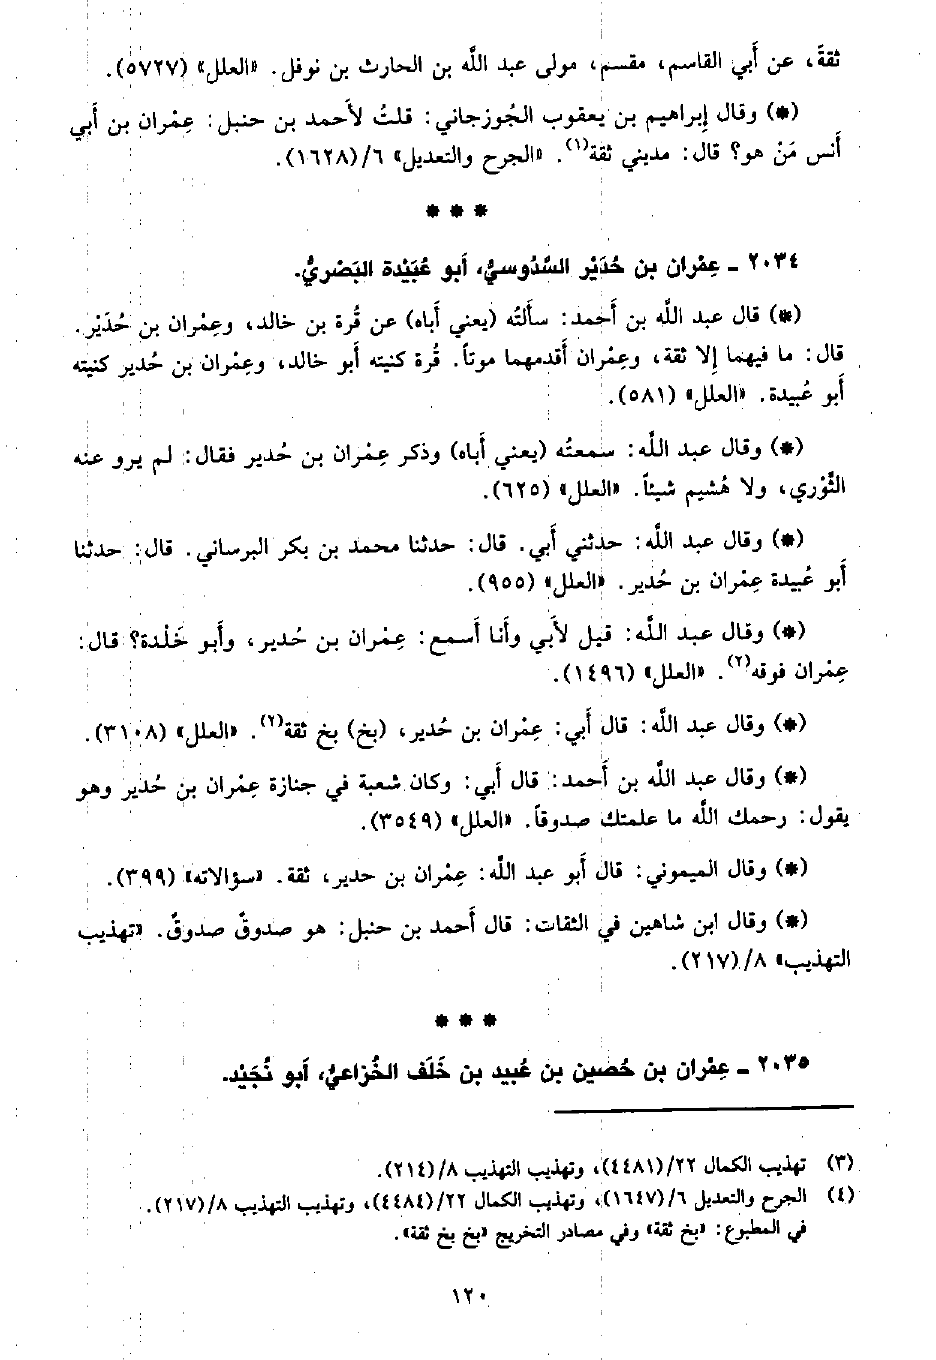 ثقةَ، عن أَبي القاسم، مقسم، مولى عبد اللَّه بن الحارث بن نوفل. «العلل» (٥٧٢٧).
(*) وقال إبراهيم بن يعقوب الجُوزجاني: قلتُ لأَحمد بن حنبل: عِمْران بن أَبي
أَنس مَنْ هو؟ قال: مديني ثقة(١). «الجرح والتعديل» ٦/(١٦٢٨).
* * *
٢٠٣٤ ـ عِمْران بن حُدَيْر السَّدُوسيُّ، أَبو عُبَيْدة البَصْريُّ.
(*) قال عبد اللَّه بن أَحمد: سأَلتُه (يعني أَباه) عن قُرة بن خالد، وعِمْران بن حُدَيْر.
قال: ما فيهما إلا ثقة، وعِمْران أَقدمهما موتاً. قُرة كنيته أَبو خالد، وعِمْران بن حُدير كنيته
أَبو عُبيدة. «العلل» (٥٨١).
(*) وقال عبد اللَّه: سمعتُه (يعني أَباه) وذكر عِمْران بن حُدير فقال: لم يرو عنه
الثَّوْري، ولا هُشيم شيئاً. «العلل» (٦٢٥).
(*) وقال عبد اللَّه: حدثني أَبي. قال: حدثنا محمد بن بكر البرساني. قال: حدثنا
أَبو عُبيدة عِمْران بن حُدير. «العلل» (٩٥٥).
(*) وقال عبد اللَّه: قيل لأَبي وأَنا أَسمع: عِمْران بن حُدير، وأَبو خَلْدة؟ قال:
عِمْران فوقه(٢). «العلل» (١٤٩٦).
(*) وقال عبد اللَّه: قال أَبي: عِمْران بن حُدير، (بخ) بخ ثقة(٢). «العلل» (٣١٠٨).
(*) وقال عبد اللَّه بن أَحمد: قال أَبي: وكان شعبة في جنازة عِمْران بن حُدير وهو
يقول: رحمك اللَّه ما علمتك صدوقاً. «العلل» (٣٥٤٩).
(*) وقال الميموني: قال أَبو عبد اللَّه: عِمْران بن حدير، ثقة. «سؤالاته» (٣٩٩).
(*) وقال ابن شاهين في الثقات: قال أَحمد بن حنبل: هو صدوقٌ صدوقٌ. «تهذيب
التهذيب» ٨/(٢١٧).
* * *
٢٠٣٥ ـ عِمْران بن حُصَين بن عُبيد بن خَلَف الخُزاعيُّ، أَبو نُجَيْد.
(٣) تهذيب الكمال ٢٢/(٤٤٨١)، وتهذيب التهذيب ٨/(٢١٤).
(٤) الجرح والتعديل ٦/(١٦٤٧)، وتهذيب الكمال ٢٢/(٤٤٨٤)، وتهذيب التهذيب ٨/(٢١٧).
في المطبوع: «بخ ثقة» وفي مصادر التخريج «بخ بخ ثقة».
١٢٠